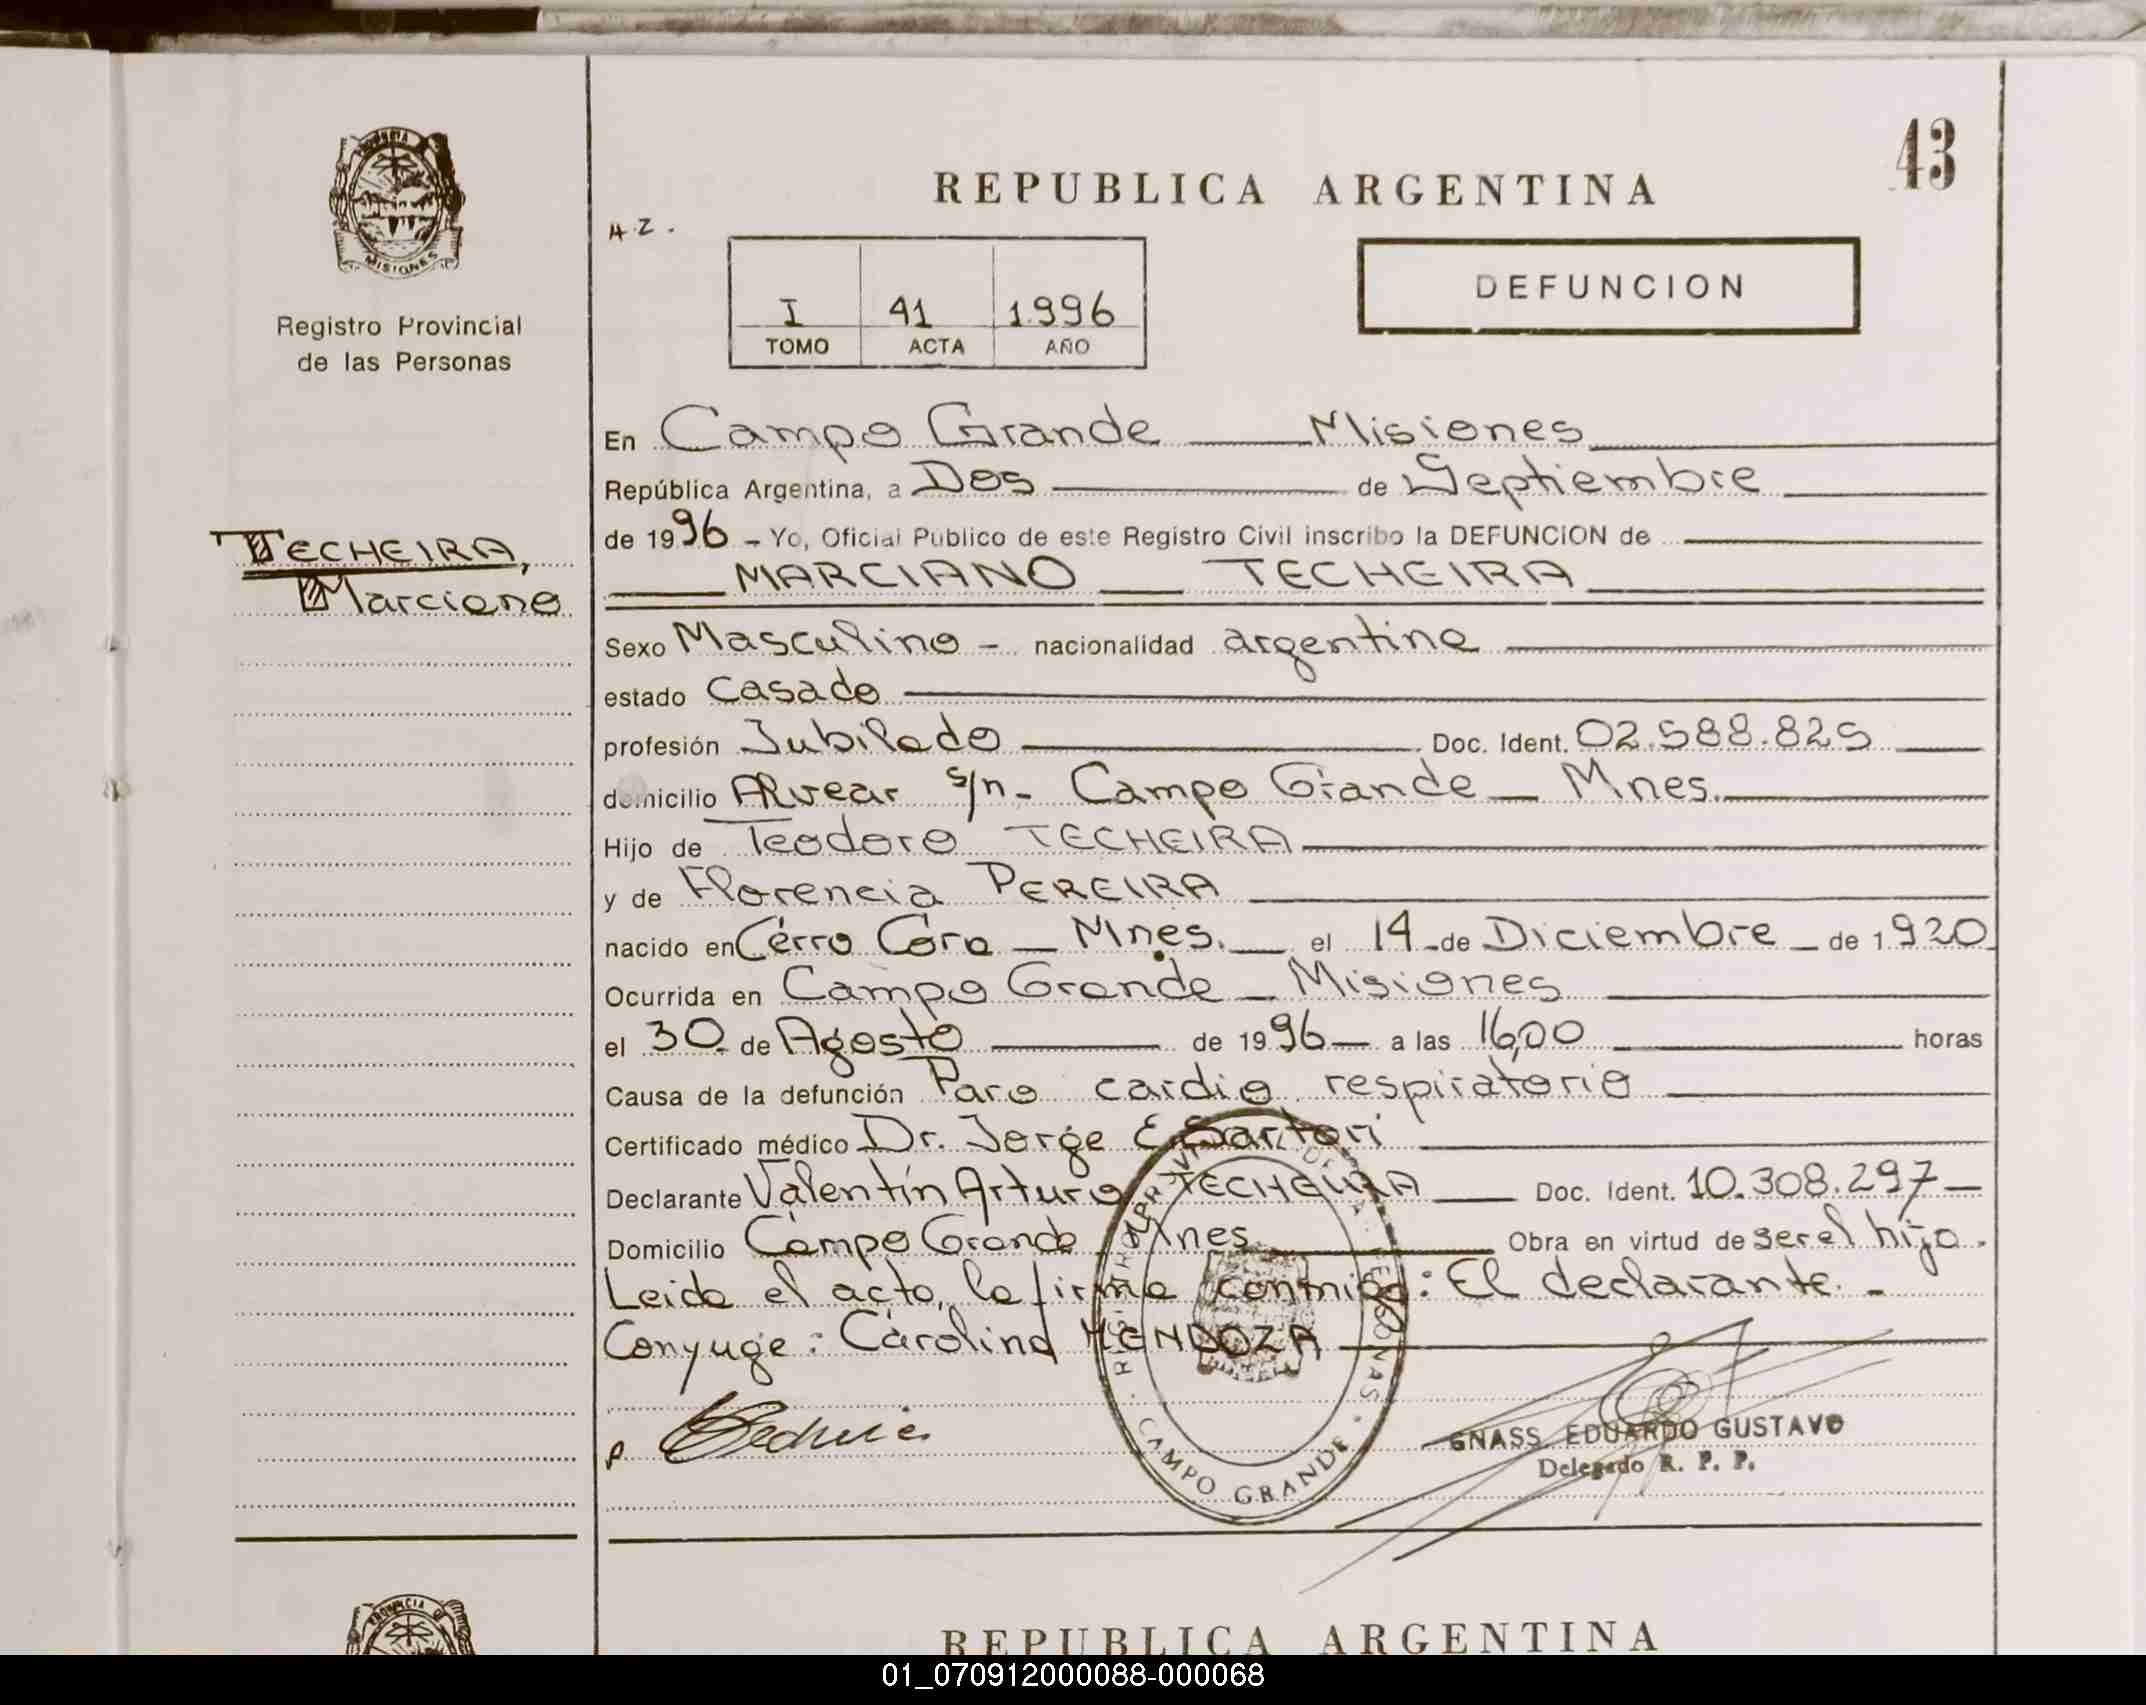 PROVINCIA DE
MISIONES
Registro Provincial
de las Personas
TECHEIRA,
Marciano
43
REPUBLICA ARGENTINA
H.Z.
DEFUNCION
I 41 1.996
TOMO ACTA AÑO
En Campo Grande Misiones
República Argentina, a Dos de Septiembre
de 1996 - Yo, Oficial Publico de este Registro Civil inscribo la DEFUNCION de
MARCIANO TECHEIRA
Sexo Masculino - nacionalidad argentina
estado Casado
profesión Jubilado Doc. Ident. 02.588.825
domicilio Alvear s/n - Campo Grande - Mnes.
Hijo de Teodoro TECHEIRA
y de Florencia PEREIRA
nacido en Cerro Cora - Mnes. el 14 de Diciembre de 1.920
Ocurrida en Campo Grande - Misiones
el 30 de Agosto de 1996 a las 16,00 horas
Causa de la defunción Paro cardio respiratorio
Certificado médico Dr. Jorge E. Sartori
Declarante Valentín Arturo TECHEIRA Doc. Ident. 10.308.297
Domicilio Campo Grande Mnes Obra en virtud de ser el hijo.
Leida el acta, la firma conmigo: El declarante. -
Conyuge: Carolina MENDOZA
REGISTRO PROVINCIAL DE LAS PERSONAS
CAMPO GRANDE
GNASS EDUARDO GUSTAVO
Delegado R. P. P.
PROVINCIA DE
REPUBLICA ARGENTINA
01_070912000088-000068